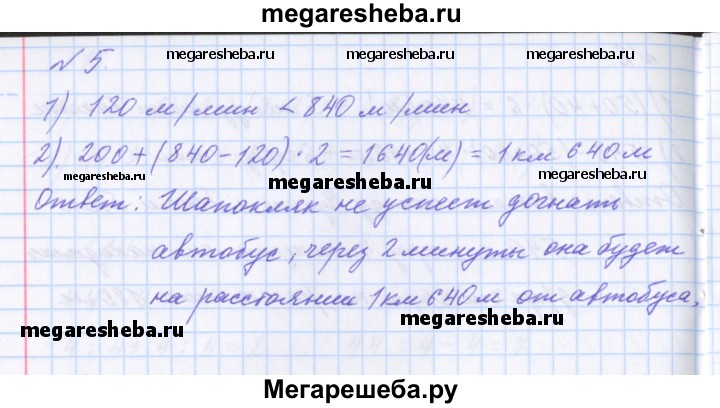 megaresheba.ru
№5. megaresheba.ru megaresheba.ru
1) 120 м/мин < 840 м/мин
2). 200+(840-120)·2=1640(м)=1км 640м
megaresheba.ru megaresheba.ru megaresheba.ru
Ответ: Шапокляк не успеет догнать
автобус, через 2 минуты она будет
на расстоянии 1км 640м от автобуса.
megaresheba.ru megaresheba.ru
Мегарешеба.ру